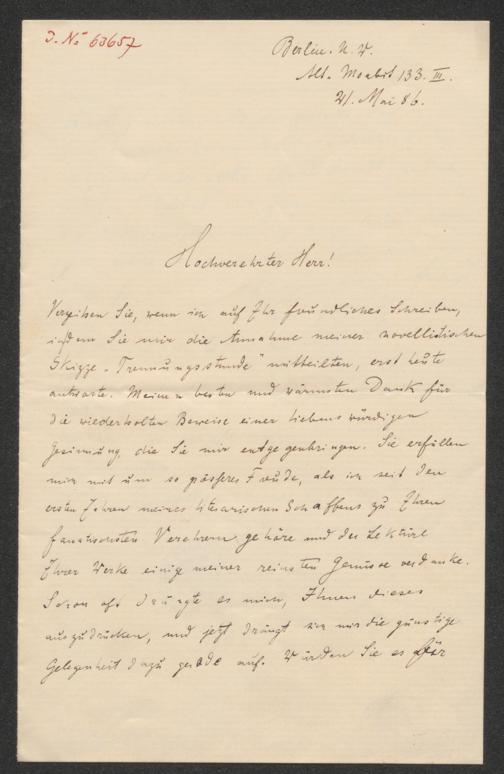 J. No 63657
Berlin. N. W.
Alt. Moabit 133. III.
21. Mai 86.
Hochverehrter Herr!
Verzeihen Sie, wenn ich auf Ihr freundliches Schreiben,
indem Sie mir die Annahme meiner novellistischen
Skizze „Trennungsstunde" mitteilten, erst heute
antworte. Meinen besten und wärmsten Dank für
die wiederholten Beweise einer liebenswürdigen
Gesinnung, die Sie mir entgegenbringen. Sie erfüllen
mich mit um so größerer Freude, als ich seit den
ersten Jahren meines literarischen Schaffens zu Ihren
fanatischsten Verehrern gehöre und der Lektüre
Ihrer Werke einige meiner reinsten Genüsse verdanke.
Schon oft drängte es mich, Ihnen dieses
auszudrücken, und jetzt drängt sich mir die günstige
Gelegenheit dazu gerade auf. Würden Sie es für